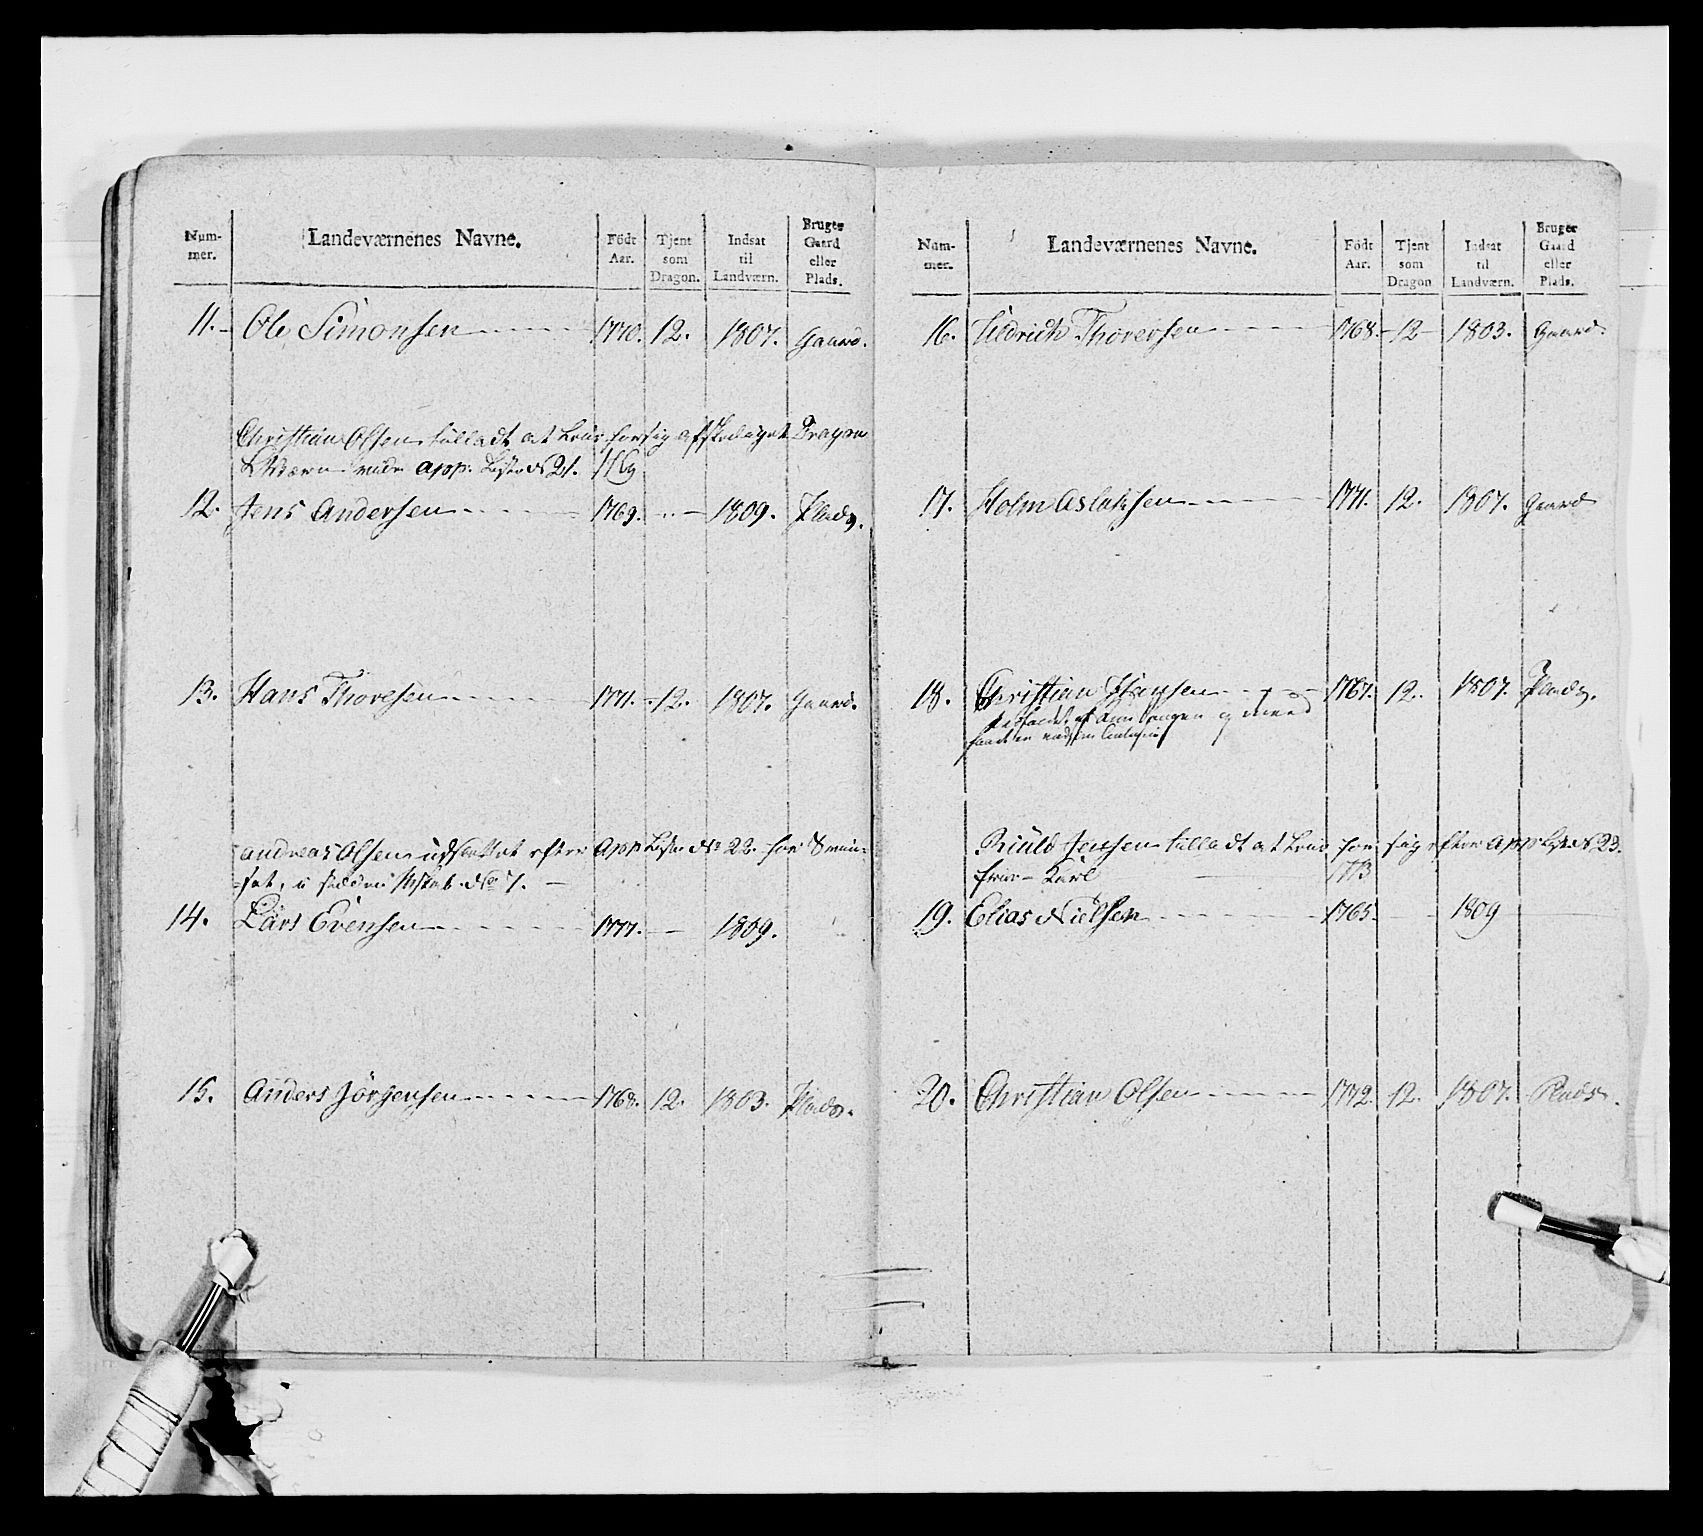 Num-
mer.
Landeværnenes Navne.
Født
Aar.
Tjent
som
Dragon.
Indsat
til
Landværn.
Bruger
Gaard
eller
Plads.
11. Ole Simonsen 1770. 12. 1807. Gaard.
Christian Olsen tilladt at for sig afskediget Dragon
app: Liste No 21. 1769
12. Jens Andersen 1769. 1809. Plads.
13. Hans Thoresen 1771. 12. 1807. Gaard.
Andreas Olsen udslettet efter App Liste No 22. for
14. Lars Evensen 1777. 1809.
15. Anders Jörgensen 1768. 12. 1803. Plads.
Num-
mer.
Landeværnenes Navne.
Født
Aar.
Tjent
som
Dragon
Indsat
til
Landværn.
Bruger
Gaard
eller
Plads.
16. Thoresen 1768. 12 1803. Gaard.
17. Holm Aslaksen 1771. 12. 1807. Gaard
18. Christian 1767. 12. 1807. Plads.
Jensen tilladt at for sig efter App Liste No 23.
Karl 1773
19. Elias Nielsen 1765. 1809
20. Christian Olsen 1772. 12. 1807. Plads.